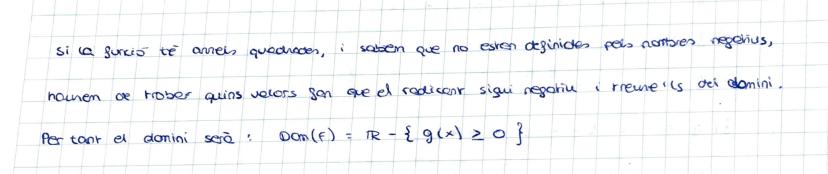 Si la funció té arrels quadrades, i sabem que no estan definides pels nombres negatius,
haurem de trobar quins valors fan que el radicant sigui negatiu i treure'ls del domini.
Per tant el domini serà : Dom(f) = ℝ - { g(x) ≥ 0 }